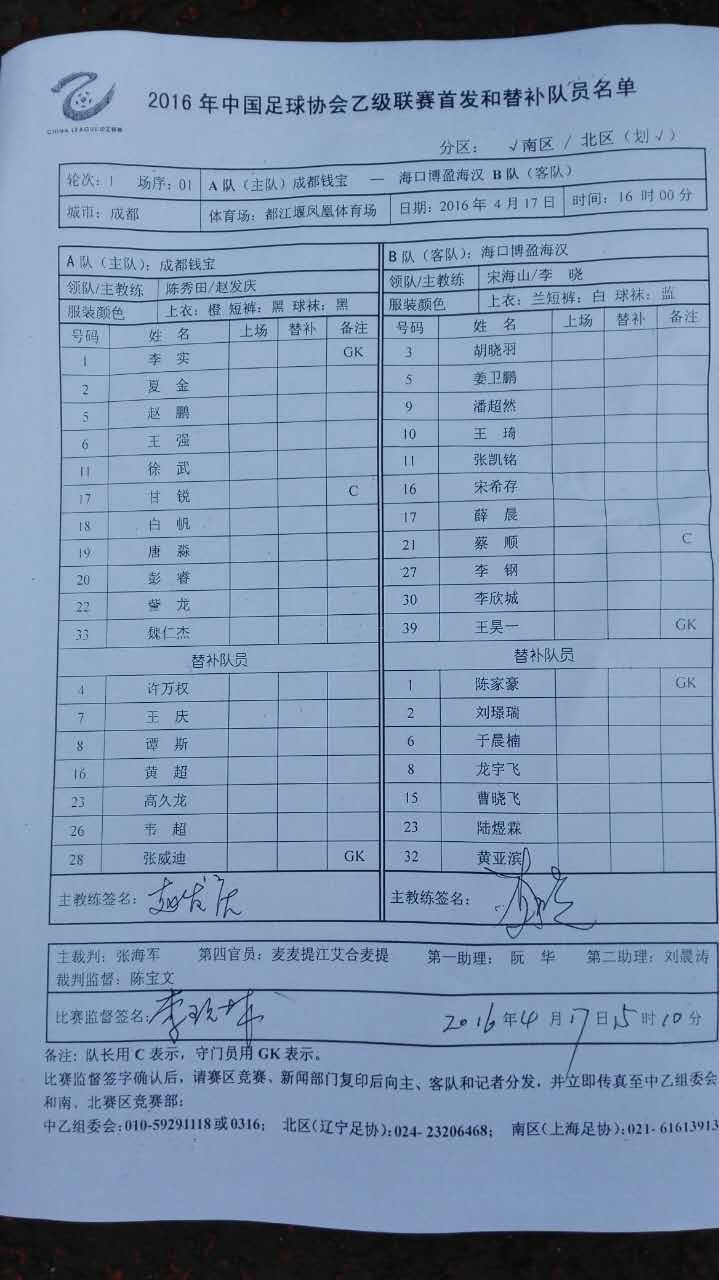 CHINA LEAGUE中乙联赛
2016年中国足球协会乙级联赛首发和替补队员名单
分区： √南区 / 北区（划√）
轮次：1 场序：01 A队（主队）成都钱宝 — 海口博盈海汉 B队（客队）
城市：成都 体育场：都江堰凤凰体育场 日期：2016年 4月17日 时间：16 时00分
A队（主队）：成都钱宝 B队（客队）：海口博盈海汉
领队/主教练 陈秀田/赵发庆 领队/主教练 宋海山/李 晓
服装颜色 上衣：橙 短裤：黑 球袜：黑 服装颜色 上衣：兰短裤：白 球袜：蓝
号码 姓 名 上场 替补 备注 号码 姓 名 上场 替补 备注
1 李 实 GK 3 胡晓羽
2 夏 金 5 姜卫鹏
5 赵 鹏 9 潘超然
6 王 强 10 王 琦
11 徐 武 11 张凯铭
17 甘 锐 C 16 宋希存
18 白 帆 17 薛 晨
19 唐 淼 21 蔡 顺 C
20 彭 睿 27 李 钢
22 訾 龙 30 李欣城
33 魏仁杰 39 王昊一 GK
替补队员 替补队员
4 许万权 1 陈家豪 GK
7 王 庆 2 刘璟瑞
8 谭 斯 6 于晨楠
16 黄 超 8 龙宇飞
23 高久龙 15 曹晓飞
26 韦 超 23 陆煜霖
28 张威迪 GK 32 黄亚滨
主教练签名：赵发庆 主教练签名：李晓
主裁判：张海军 第四官员：麦麦提江艾合麦提 第一助理： 阮 华 第二助理：刘晨涛
裁判监督：陈宝文
比赛监督签名： 2016年4月17日15时10分
备注：队长用C表示，守门员用GK表示。
比赛监督签字确认后，请赛区竞赛、新闻部门复印后向主、客队和记者分发，并立即传真至中乙组委会
和南、北赛区竞赛部：
中乙组委会：010-59291118或0316； 北区（辽宁足协）：024- 23206468； 南区（上海足协）：021- 61613913